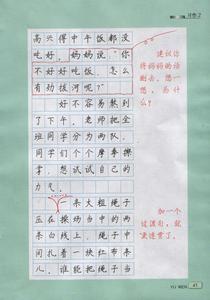 高兴得中午饭都没
吃好，妈妈说“你
不好好吃饭，怎么
有劲拔河呢？”
好不容易熬到
了下午。老师把全
班同学分为两队，
同学们个个摩拳擦
掌，想试试自己的
力气。
一条大粗绳子
压在操场当中的两
条白线上，绳子中
间扎着一块红布条
儿。谁能把绳子当
建议你
将妈妈的话
删去。想一
想，为什么？
加一个
过渡句，就
更连贯了。
YU WEN